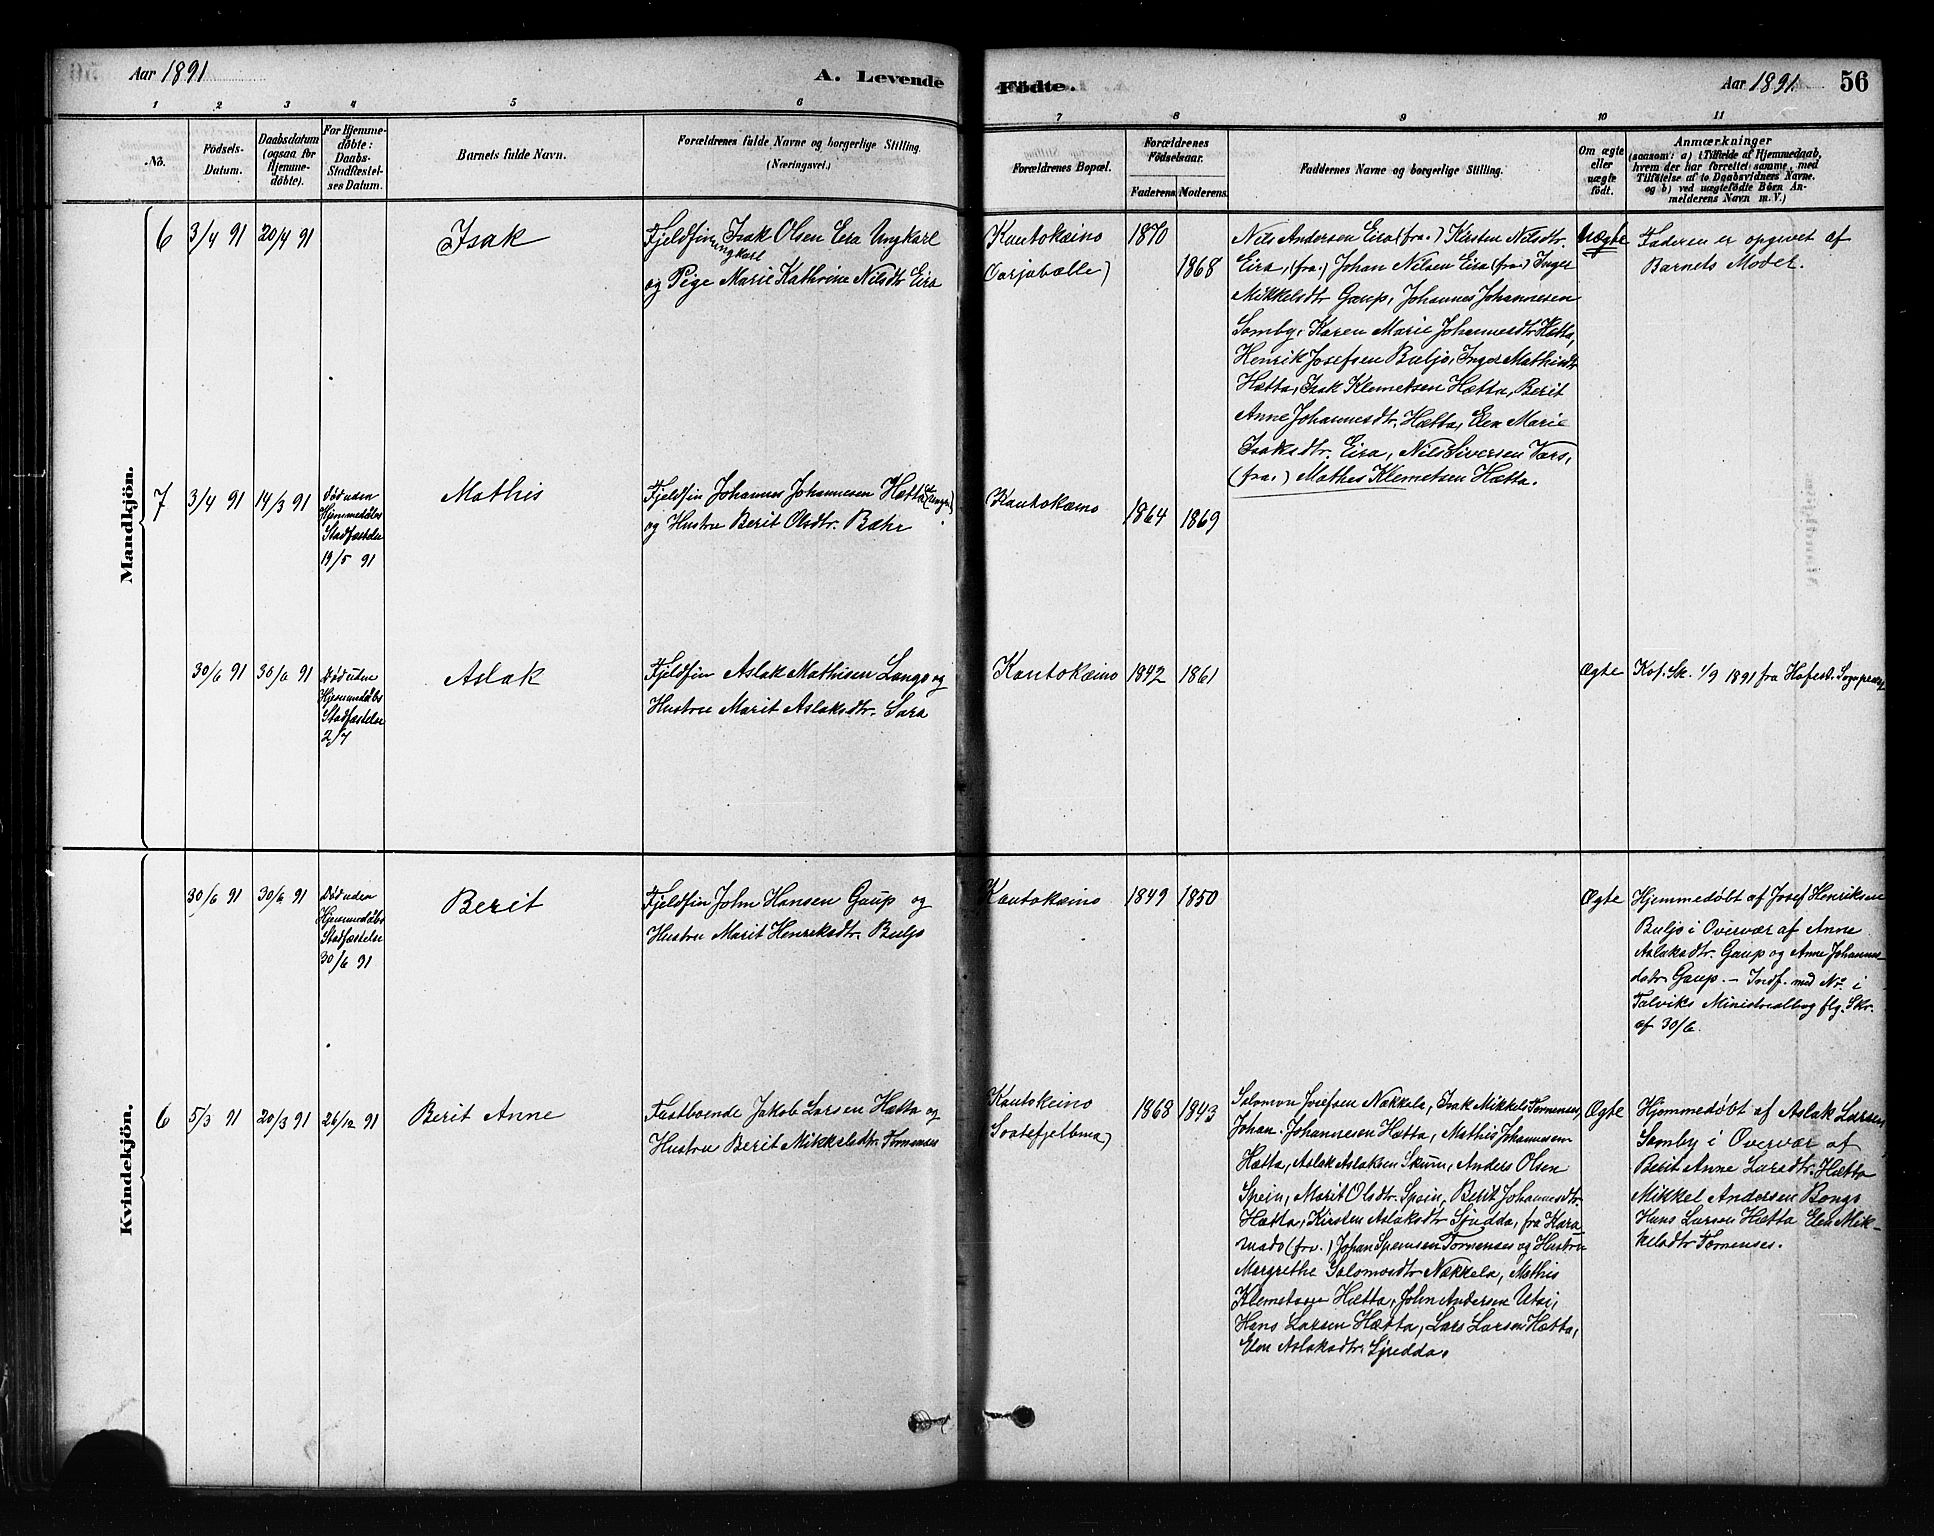 Aar 1891
A. Levende
Födte.
Aar 1891.
56
1 2 3 4 5 6 7 8 9 10 11
No.
Födsels-
Datum.
Daabsdatum
(ogsaa for
Hjemme-
døbte).
For Hjemme-
døbte:
Daabs-
Stadfæstel-
ses Datum.
Barnets fulde Navn.
Forældrenes fulde Navne og borgerlige Stilling.
(Næringsvei.)
Forældrenes Bopæl.
Forældrenes
Födselsaar.
Faderens
Moderens.
Faddernes Navne og borgerlige Stilling.
Om ægte
eller
uægte
födt.
Anmærkninger
(saasom: a) i Tilfælde af Hjemmedaab,
hvem der har forrettet samme, med
Tilföielse af to Daabsvidners Navne.
og b) ved uægtefödte Börn An-
melderens Navn m. V.)
Mandkjön.
6
3/4 91
20/4 91
Isak
Fjeldfin Isak Olsen Eira Ungkarl
ungkarl
og Pige Marie Kathrine Nilsdtr Eira
Kautokeino
1870
1868
Nils Andersen Eira (fra.) Kirsten Nilsdtr.
Eira, (fra.) Johan Nilsen Eira (fra.) Inger
Mikkelsdtr Gaup, Johannes Johannesen
Somby, Karen Marie Johannesdtr Hætta,
Henrik Josefsen Buljo, Inger Mathisdtr
Hætta, Isak Klemetsen Hætta, Berit
Anne Johannesdtr. Hætta, Elen Marie
Isaksdtr. Eira, Nils Siversen Vars,
(fra.) Mathis Klemetsen Hætta.
Uægte
Faderen er opgivet af
Barnets Moder.
7
3/4 91
14/3 91
Død uden
Hjemmedåbs
Stadfæstelse
19/5 91
Mathis
Fjeldfin Johannes Johannesen Hætta
og Hustru Berit Olsdtr. Bæhr
Kautokeino
1864
1869
30/6 91
30/6 91
Død uden
Hjemmedåbs
Stadfæstelse
2/7
Aslak
Fjeldfin Aslak Mathisen Lango og
Hustru Marit Aslaksdtr. Sara
Kautokeino
1842
1861
Ægte
Kof. Sk. 1/9 1891 fra Sognepræst
Kvindekjön.
30/6 91
30/6 91
Død uden
Hjemmedåbs
Stadfæstelse
30/6 91
Berit
Fjeldfin John Hansen Gaup og
Hustru Marit Henriksdtr. Buljo
Kautokeino
1849
1850
Ægte
Hjemmedøbt af Josef Henriksen
Buljo i Overvær af Anne
Aslaksdtr. Gaup og Anne Johannes-
datr Gaup. – Indf. med No. i
Talviks Ministerialbog flg. Skr.
af 30/6.
6
5/3 91
20/3 91
26/12 91
Berit Anne
Fastboende Jakob Larsen Hætta og
Hustru Berit Mikkelsdtr. Tornenses
Kautokeino
Soatefjelbma)
1868
1843
Salomon Josefsen Nækkela, Isak Mikkels Tornenses,
Johan. Johannesen Hætta, Mathis Johannesen
Hætta, Aslak Aslaksen Skum, Anders Olsen
Spein, Marit Olsdtr. Spein, Berit Johannesdtr.
Hætta, Kirsten Aslaksdtr Sjudda, fra Kara
(fra.) Johan Tornenses og Hustru
Margrethe Salomonsdtr Nækkela, Mathis
Klemetsen Hætta, John Andersen Utsi,
Hans Larsen Hætta, Lars Larsen Hætta,
Elen Aslaksdtr. Sjudda.
Ægte
Hjemmedøbt af Aslak Larsen
Somby i Overvær af
Berit Anne Larsdtr. Hætta
Mikkel Andersen Bongo
Hans Larsen Hætta Elen Mik-
kelsdtr Tornenses.